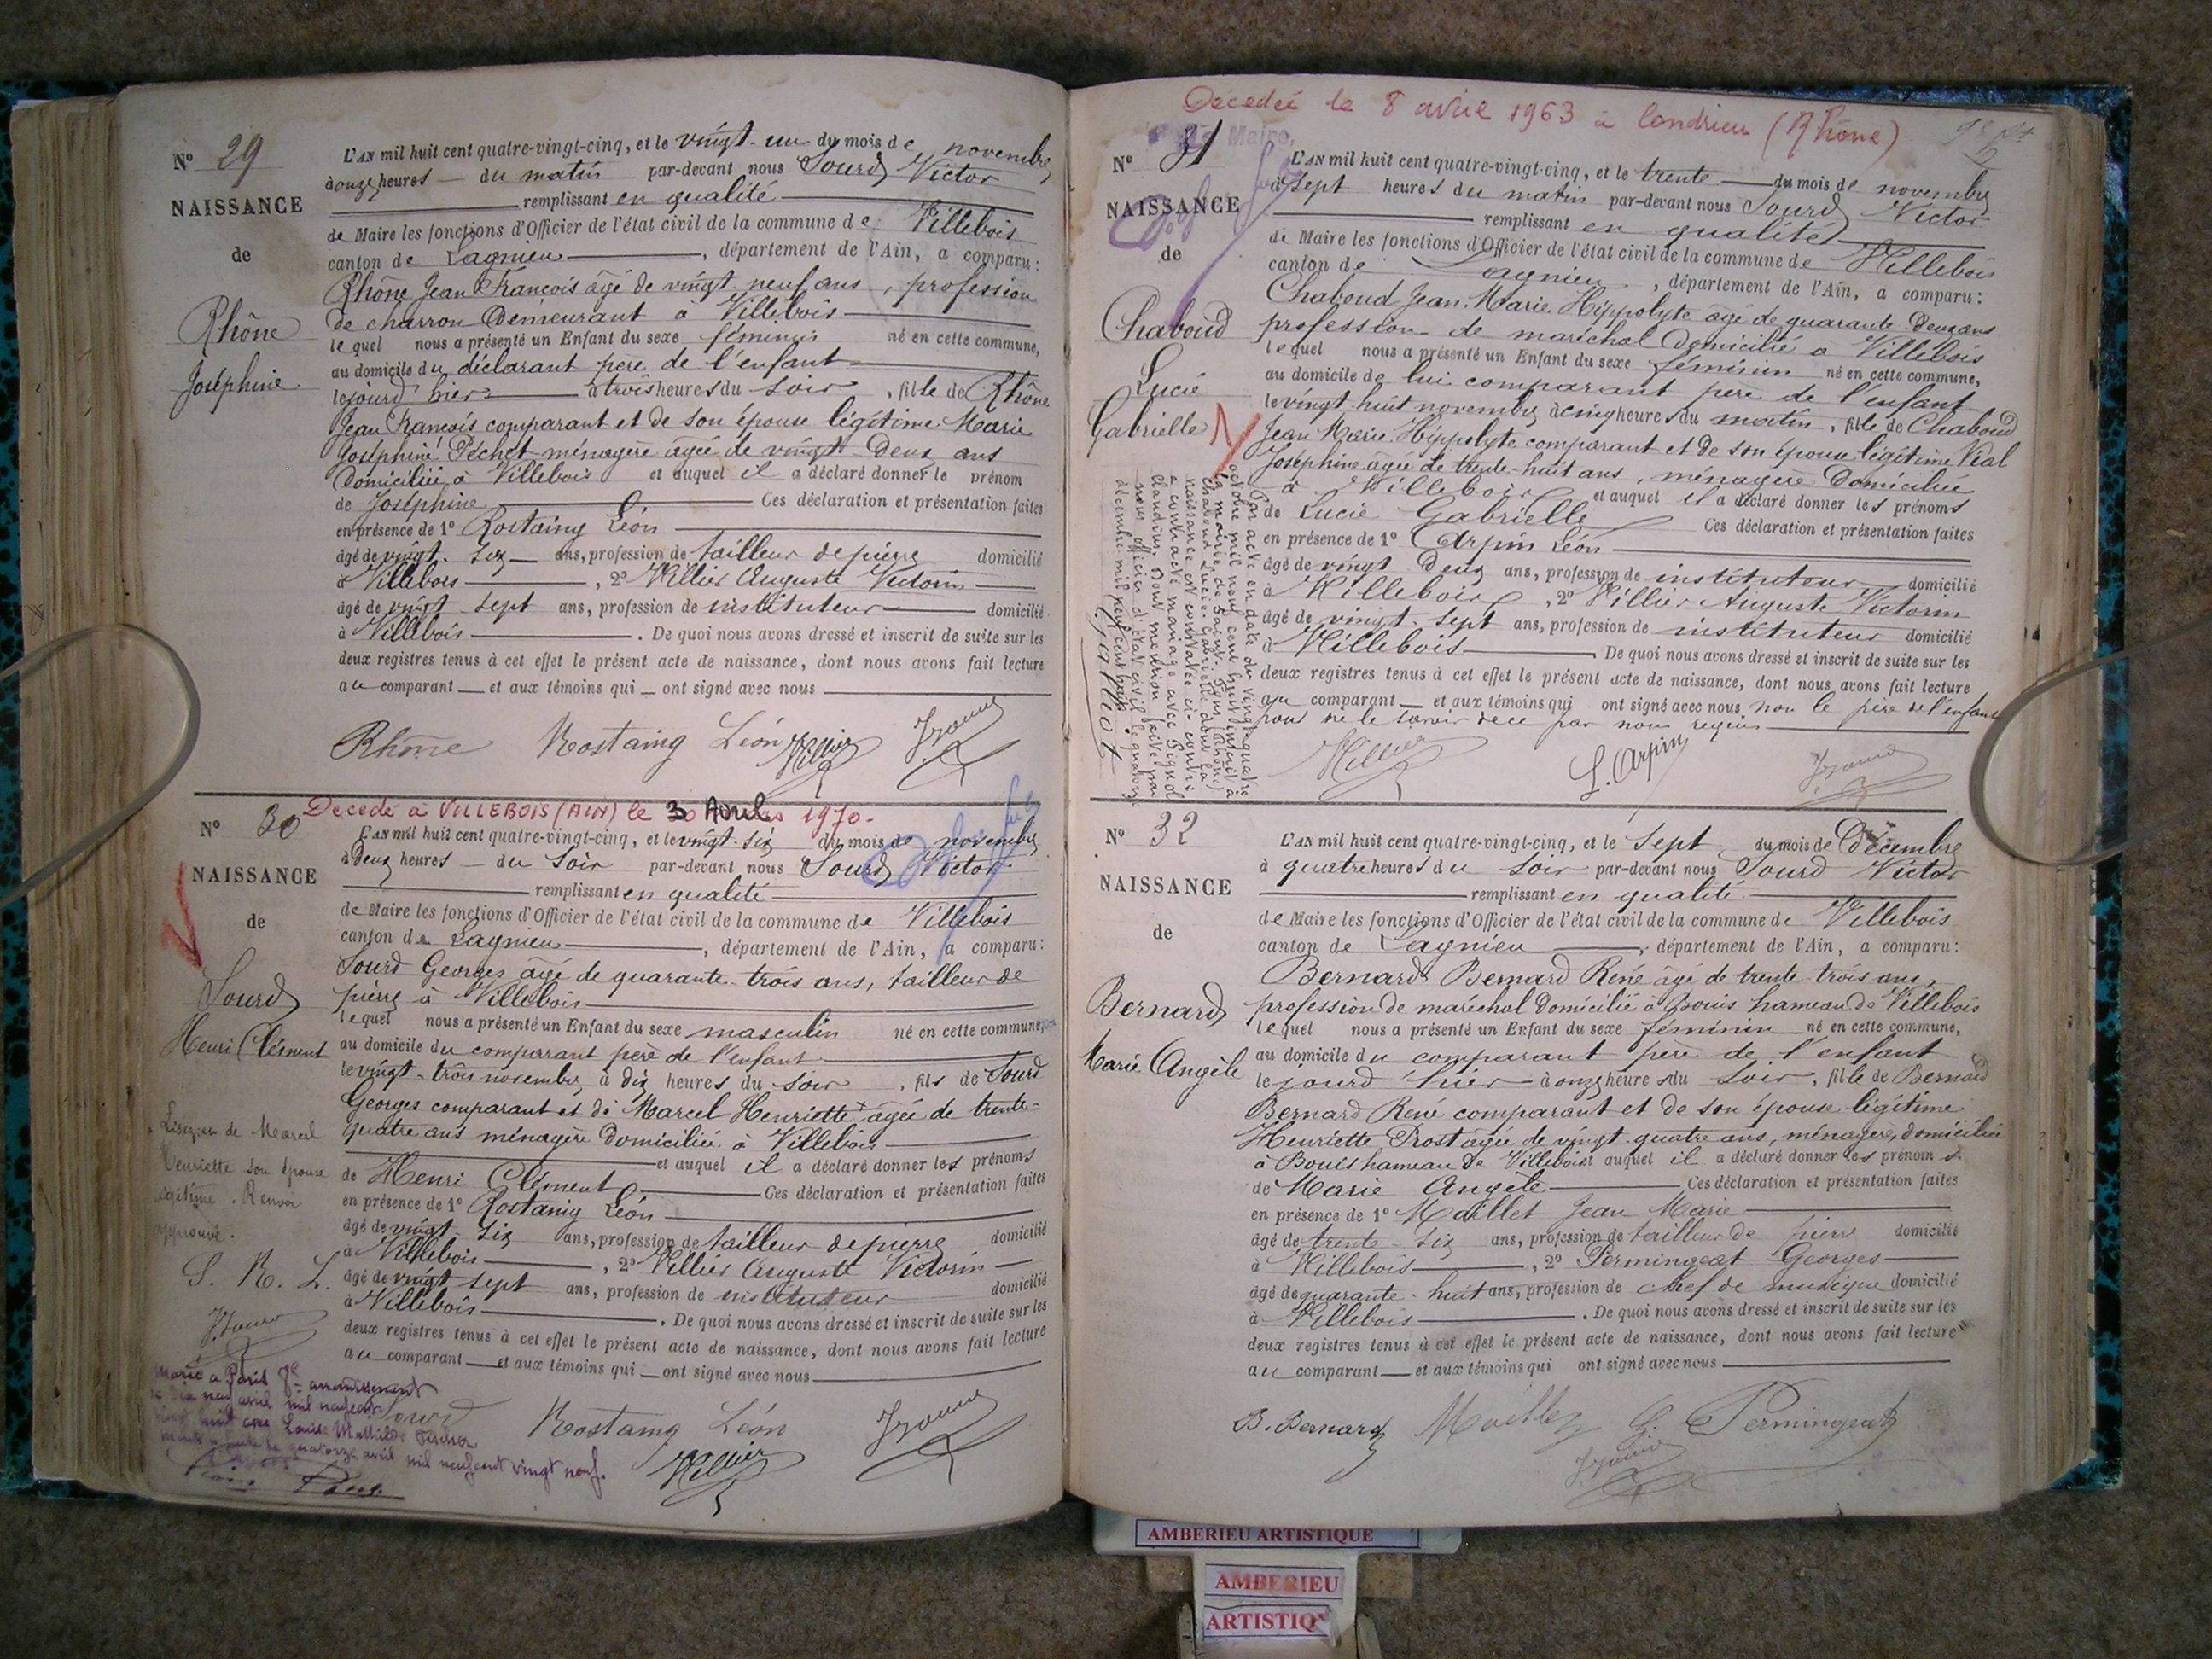 N° 29
NAISSANCE
de
Rhône
Joséphine
L'AN mil huit cent quatre-vingt-cinq, et le vingt-un du mois de novembre
à onze heures du matin par-devant nous Sourd Victor
remplissant en qualité
de Maire les fonctions d'Officier de l'état civil de la commune de Villebois
canton de Lagnieu, département de l'Ain, a comparu:
Rhône Jean François âgé de vingt neuf ans, profession
de charron demeurant à Villebois
lequel nous a présenté un Enfant du sexe féminin né en cette commune,
au domicile du déclarant père de l'enfant
le jourd'hier à trois heures du soir, fille de Rhône
Jean François comparant et de son épouse légitime Marie
Joséphine Péchet ménagère âgée de vingt-deux ans
domiciliée à Villebois et auquel il a déclaré donner le prénom
de Joséphine Ces déclaration et présentation faites
en présence de 1° Rostaing Léon
âgé de vingt-six ans, profession de tailleur de pierre domicilié
à Villebois, 2° Villier Auguste Victorin
âgé de vingt sept ans, profession de instituteur domicilié
à Villebois. De quoi nous avons dressé et inscrit de suite sur les
deux registres tenus à cet effet le présent acte de naissance, dont nous avons fait lecture
au comparant et aux témoins qui ont signé avec nous
Rhône Rostaing Léon Villier
Décédé à VILLEBOIS (AIN) le 30 Avril 1970.
N° 30
NAISSANCE
de
Sourd
Henri Clément
L'AN mil huit cent quatre-vingt-cinq, et le vingt-six du mois de novembre
à deux heures du soir par-devant nous Sourd Victor
remplissant en qualité
de Maire les fonctions d'Officier de l'état civil de la commune de Villebois
canton de Lagnieu, département de l'Ain, a comparu:
Sourd Georges âgé de quarante-trois ans, tailleur de
pierre à Villebois
lequel nous a présenté un Enfant du sexe masculin né en cette commune,
au domicile du comparant père de l'enfant
le vingt-trois novembre à dix heures du soir, fils de Sourd
Georges comparant et de Marcel Henriette âgée de trente-
quatre ans ménagère domiciliée à Villebois
et auquel il a déclaré donner les prénoms
de Henri Clément Ces déclaration et présentation faites
en présence de 1° Rostaing Léon
âgé de vingt-six ans, profession de tailleur de pierre domicilié
à Villebois, 2° Villier Auguste Victorin
âgé de vingt sept ans, profession de instituteur domicilié
à Villebois. De quoi nous avons dressé et inscrit de suite sur les
deux registres tenus à cet effet le présent acte de naissance, dont nous avons fait lecture
au comparant et aux témoins qui ont signé avec nous
de Marcel
Henriette son épouse
légitime. Renvoi
approuvé.
S. R. L.
Marié à Paris 7e arrondissement
le dix neuf avril mil neuf cent
vingt huit avec Louise Mathilde Fischer
quatorze avril mil neuf cent vingt neuf.
Sourd Rostaing Léon
Villier
Décédée le 8 avril 1963 à Condrieu (Rhône)
Maire,
N° 31
NAISSANCE
de
Chaboud
Lucie
Gabrielle
L'AN mil huit cent quatre-vingt-cinq, et le trente du mois de novembre
à sept heures du matin par-devant nous Sourd Victor
remplissant en qualité
de Maire les fonctions d'Officier de l'état civil de la commune de Villebois
canton de Lagnieu, département de l'Ain, a comparu:
Chaboud Jean-Marie Hippolyte âgé de quarante-deux ans
profession de maréchal domicilié à Villebois
lequel nous a présenté un Enfant du sexe féminin né en cette commune,
au domicile de lui comparant père de l'enfant
le vingt-huit novembre à cinq heures du matin, fille de Chaboud
Jean Marie Hippolyte comparant et de son épouse légitime Vial
Joséphine âgée de trente-huit ans, ménagère domiciliée
à Villebois et auquel il a déclaré donner les prénoms
de Lucie Gabrielle Ces déclaration et présentation faites
en présence de 1° Arpin Léon
âgé de vingt deux ans, profession de instituteur domicilié
à Villebois, 2° Villier Auguste Victorin
âgé de vingt-sept ans, profession de instituteur domicilié
à Villebois De quoi nous avons dressé et inscrit de suite sur les
deux registres tenus à cet effet le présent acte de naissance, dont nous avons fait lecture
au comparant et aux témoins qui ont signé avec nous non le père de l'enfant
pour ne le savoir de ce par nous requis
Par acte en date du vingt quatre
octobre mil neuf cent huit inscrit à
la mairie de Saint-Fons (Rhône)
Chaboud Lucie Gabrielle dont la
naissance est constatée ci-contre
a contracté mariage avec Pignol
Claudius. Dont mention faite par
nous officier d'état civil le quatorze
décembre mil neuf cent huit.
Villier L. Arpin
N° 32
NAISSANCE
de
Bernard
Marie Angèle
L'AN mil huit cent quatre-vingt-cinq, et le sept du mois de Décembre
à quatre heures du soir par-devant nous Sourd Victor
remplissant en qualité
de Maire les fonctions d'Officier de l'état civil de la commune de Villebois
canton de Lagnieu, département de l'Ain, a comparu:
Bernard Bernard René âgé de trente-trois ans,
profession de maréchal domicilié à Bouis hameau de Villebois
lequel nous a présenté un Enfant du sexe féminin né en cette commune,
au domicile du comparant père de l'enfant
le jourd'hier à onze heures du soir, fille de Bernard
Bernard René comparant et de son épouse légitime
Henriette Prost âgée de vingt-quatre ans, ménagère, domiciliée
à Bouis hameau de Villebois et auquel il a déclaré donner les prénoms
de Marie Angèle Ces déclaration et présentation faites
en présence de 1° Maillet Jean Marie
âgé de trente-six ans, profession de tailleur de pierre domicilié
à Villebois, 2° Permingeat Georges
âgé de quarante-huit ans, profession de chef de musique domicilié
à Villebois. De quoi nous avons dressé et inscrit de suite sur les
deux registres tenus à cet effet le présent acte de naissance, dont nous avons fait lecture
au comparant et aux témoins qui ont signé avec nous
B. Bernard Maillet G. Permingeat
AMBERIEU ARTISTIQUE
AMBERIEU
ARTISTIQ